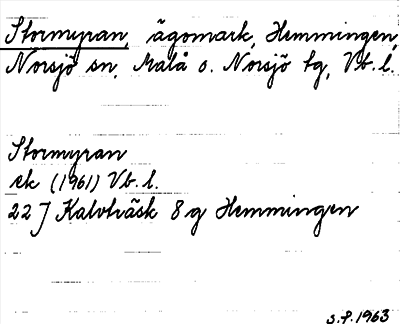 Stormyran, ägomark, Hemmingen,
Norsjö sn, Malå o. Norsjö tg, Vb. l.
Stormyran
ek (1961) Vb. l.
22 J Kalvträsk 8 g Hemmingen
S.P. 1963